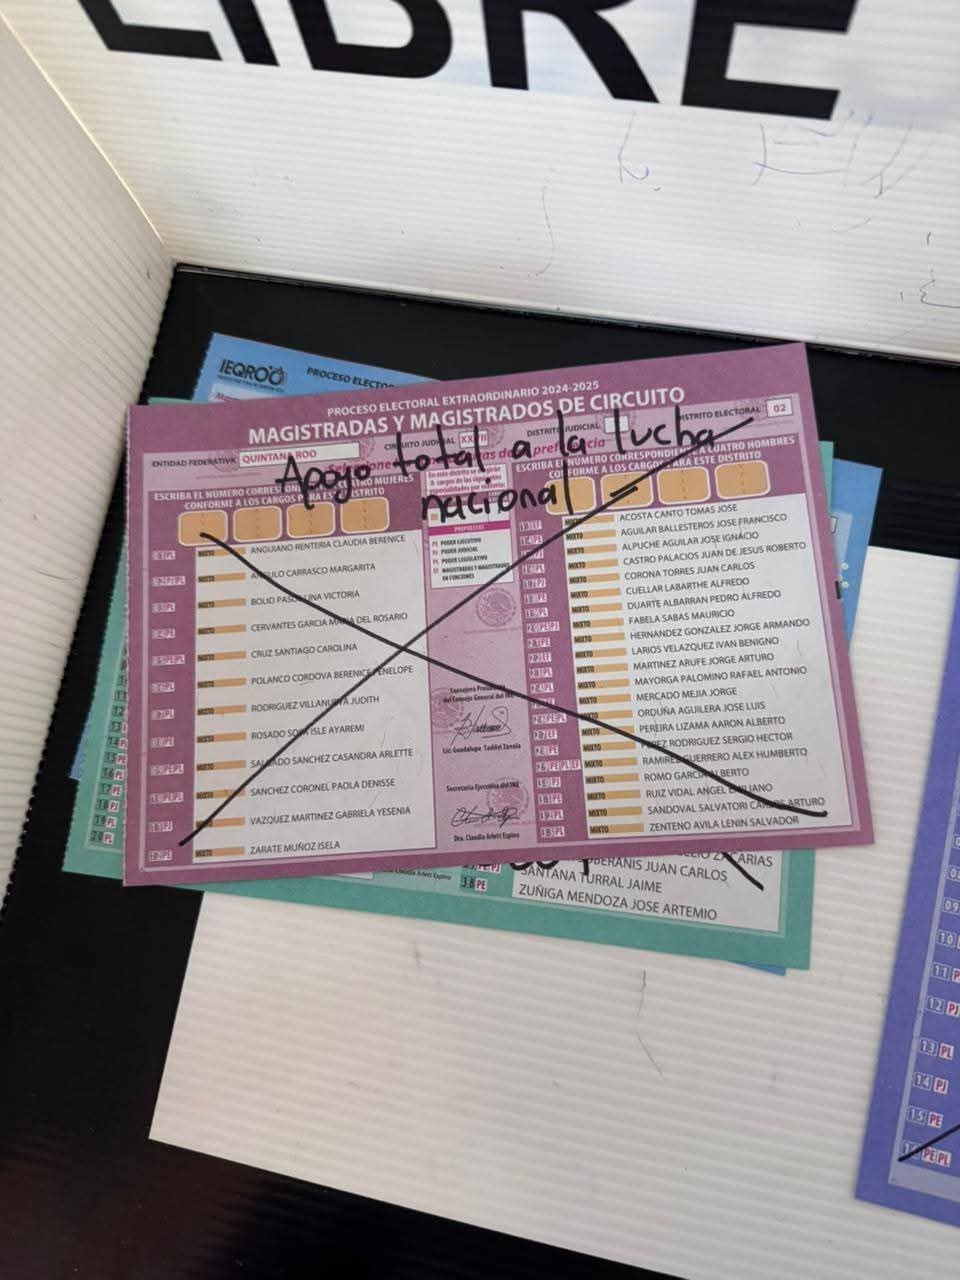 LIBRE
IEQROO
PROCESO ELECTO
PROCESO ELECTORAL EXTRAORDINARIO 2024-2025
MAGISTRADAS Y MAGISTRADOS DE CIRCUITO
ENTIDAD FEDERATIVA QUINTANA ROO CIRCUITO JUDICIAL XXVII DISTRITO JUDICIAL DISTRITO ELECTORAL 02
Apoyo total a la lucha
nacional
ESCRIBA EL NÚMERO CUATRO MUJERES
CONFORME A LOS CARGOS PARA ESTE DISTRITO
MIXTO ANGUIANO RENTERIA CLAUDIA BERENICE
MIXTO ANGULO CARRASCO MARGARITA
MIXTO BOLIO PASOS LINA VICTORIA
MIXTO CERVANTES GARCIA MARIA DEL ROSARIO
MIXTO CRUZ SANTIAGO CAROLINA
MIXTO POLANCO CORDOVA BERENICE PENELOPE
MIXTO RODRIGUEZ VILLANUEVA JUDITH
MIXTO ROSADO SOSA ISLE AYAREMI
MIXTO SALGADO SANCHEZ CASANDRA ARLETTE
MIXTO SANCHEZ CORONEL PAOLA DENISSE
MIXTO VAZQUEZ MARTINEZ GABRIELA YESENIA
MIXTO ZARATE MUÑOZ ISELA
PROPUESTAS
PE PODER EJECUTIVO
PJ PODER JUDICIAL
PL PODER LEGISLATIVO
EF MAGISTRADAS Y MAGISTRADOS
EN FUNCIONES
Consejera Presidenta
del Consejo General del INE
Lic. Guadalupe Taddei Zavala
Secretaria Ejecutiva del INE
Dra. Claudia Arlett Espino
ESCRIBA EL NÚMERO CUATRO HOMBRES
CONFORME A LOS CARGOS PARA ESTE DISTRITO
MIXTO ACOSTA CANTO TOMAS JOSE
MIXTO AGUILAR BALLESTEROS JOSE FRANCISCO
MIXTO ALPUCHE AGUILAR JOSE IGNACIO
MIXTO CASTRO PALACIOS JUAN DE JESUS ROBERTO
MIXTO CORONA TORRES JUAN CARLOS
MIXTO CUELLAR LABARTHE ALFREDO
MIXTO DUARTE ALBARRAN PEDRO ALFREDO
MIXTO FABELA SABAS MAURICIO
MIXTO HERNANDEZ GONZALEZ JORGE ARMANDO
MIXTO LARIOS VELAZQUEZ IVAN BENIGNO
MIXTO MARTINEZ ARUFE JORGE ARTURO
MIXTO MAYORGA PALOMINO RAFAEL ANTONIO
MIXTO MERCADO MEJIA JORGE
MIXTO ORDUÑA AGUILERA JOSE LUIS
MIXTO PEREIRA LIZAMA AARON ALBERTO
MIXTO PEREZ RODRIGUEZ SERGIO HECTOR
MIXTO RAMIREZ GUERRERO ALEX HUMBERTO
MIXTO ROMO GARCIA ALBERTO
MIXTO RUIZ VIDAL ANGEL EMILIANO
MIXTO SANDOVAL SALVATORI CARLOS ARTURO
MIXTO ZENTENO AVILA LENIN SALVADOR
ZACARIAS
SOBERANIS JUAN CARLOS
38 PE SANTANA TURRAL JAIME
ZUÑIGA MENDOZA JOSE ARTEMIO
12
13
14 PL
15 PE
16 PL
17 PE
18 PJ
19 PL
20 PL
09
10
11 P
12 PJ
13 PL
14 PJ
15 PE
16 PE PL